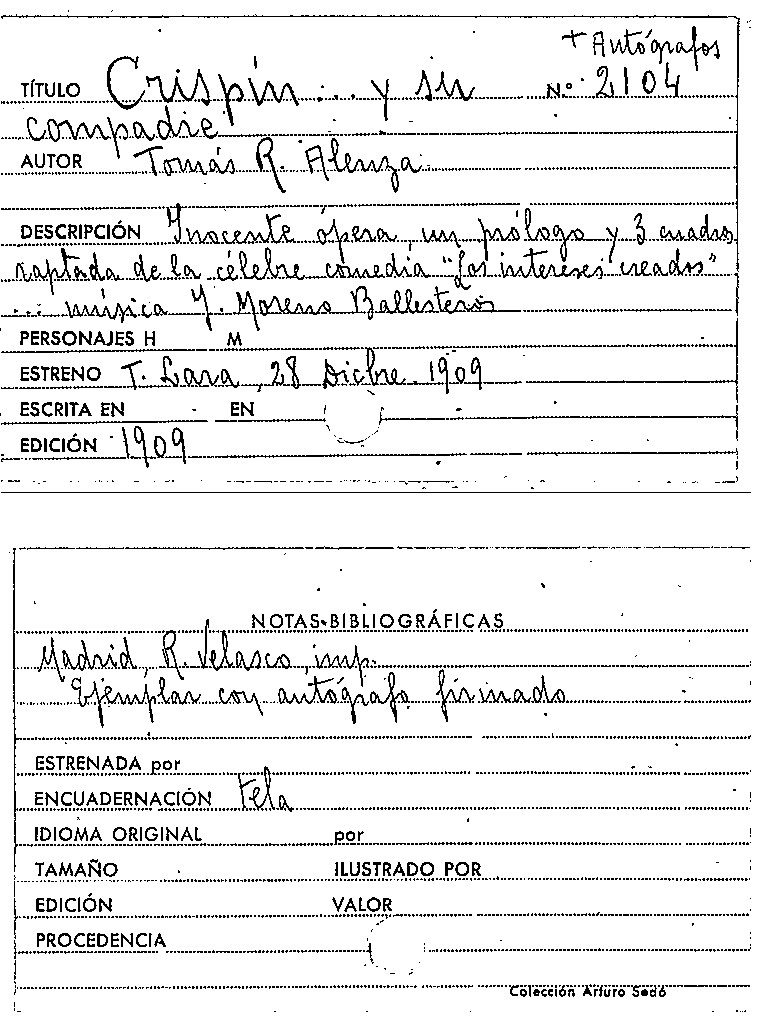 + Autógrafos
TÍTULO Crispín ... y su Nº 2104
compadre
AUTOR Tomás R. Alenza
DESCRIPCIÓN Inocente ópera, un prólogo y 3 cuadros
raptada de la célebre comedia "Los intereses creados"
... música J. Moreno Ballesteros
PERSONAJES H M
ESTRENO T. Lara, 28 Dicbre. 1909
ESCRITA EN EN
EDICIÓN 1909
NOTAS BIBLIOGRÁFICAS
Madrid, R. Velasco, imp.
Ejemplar con autógrafo firmado
ESTRENADA por
ENCUADERNACIÓN tela
IDIOMA ORIGINAL por
TAMAÑO ILUSTRADO POR
EDICIÓN VALOR
PROCEDENCIA
Colección Arturo Sedó